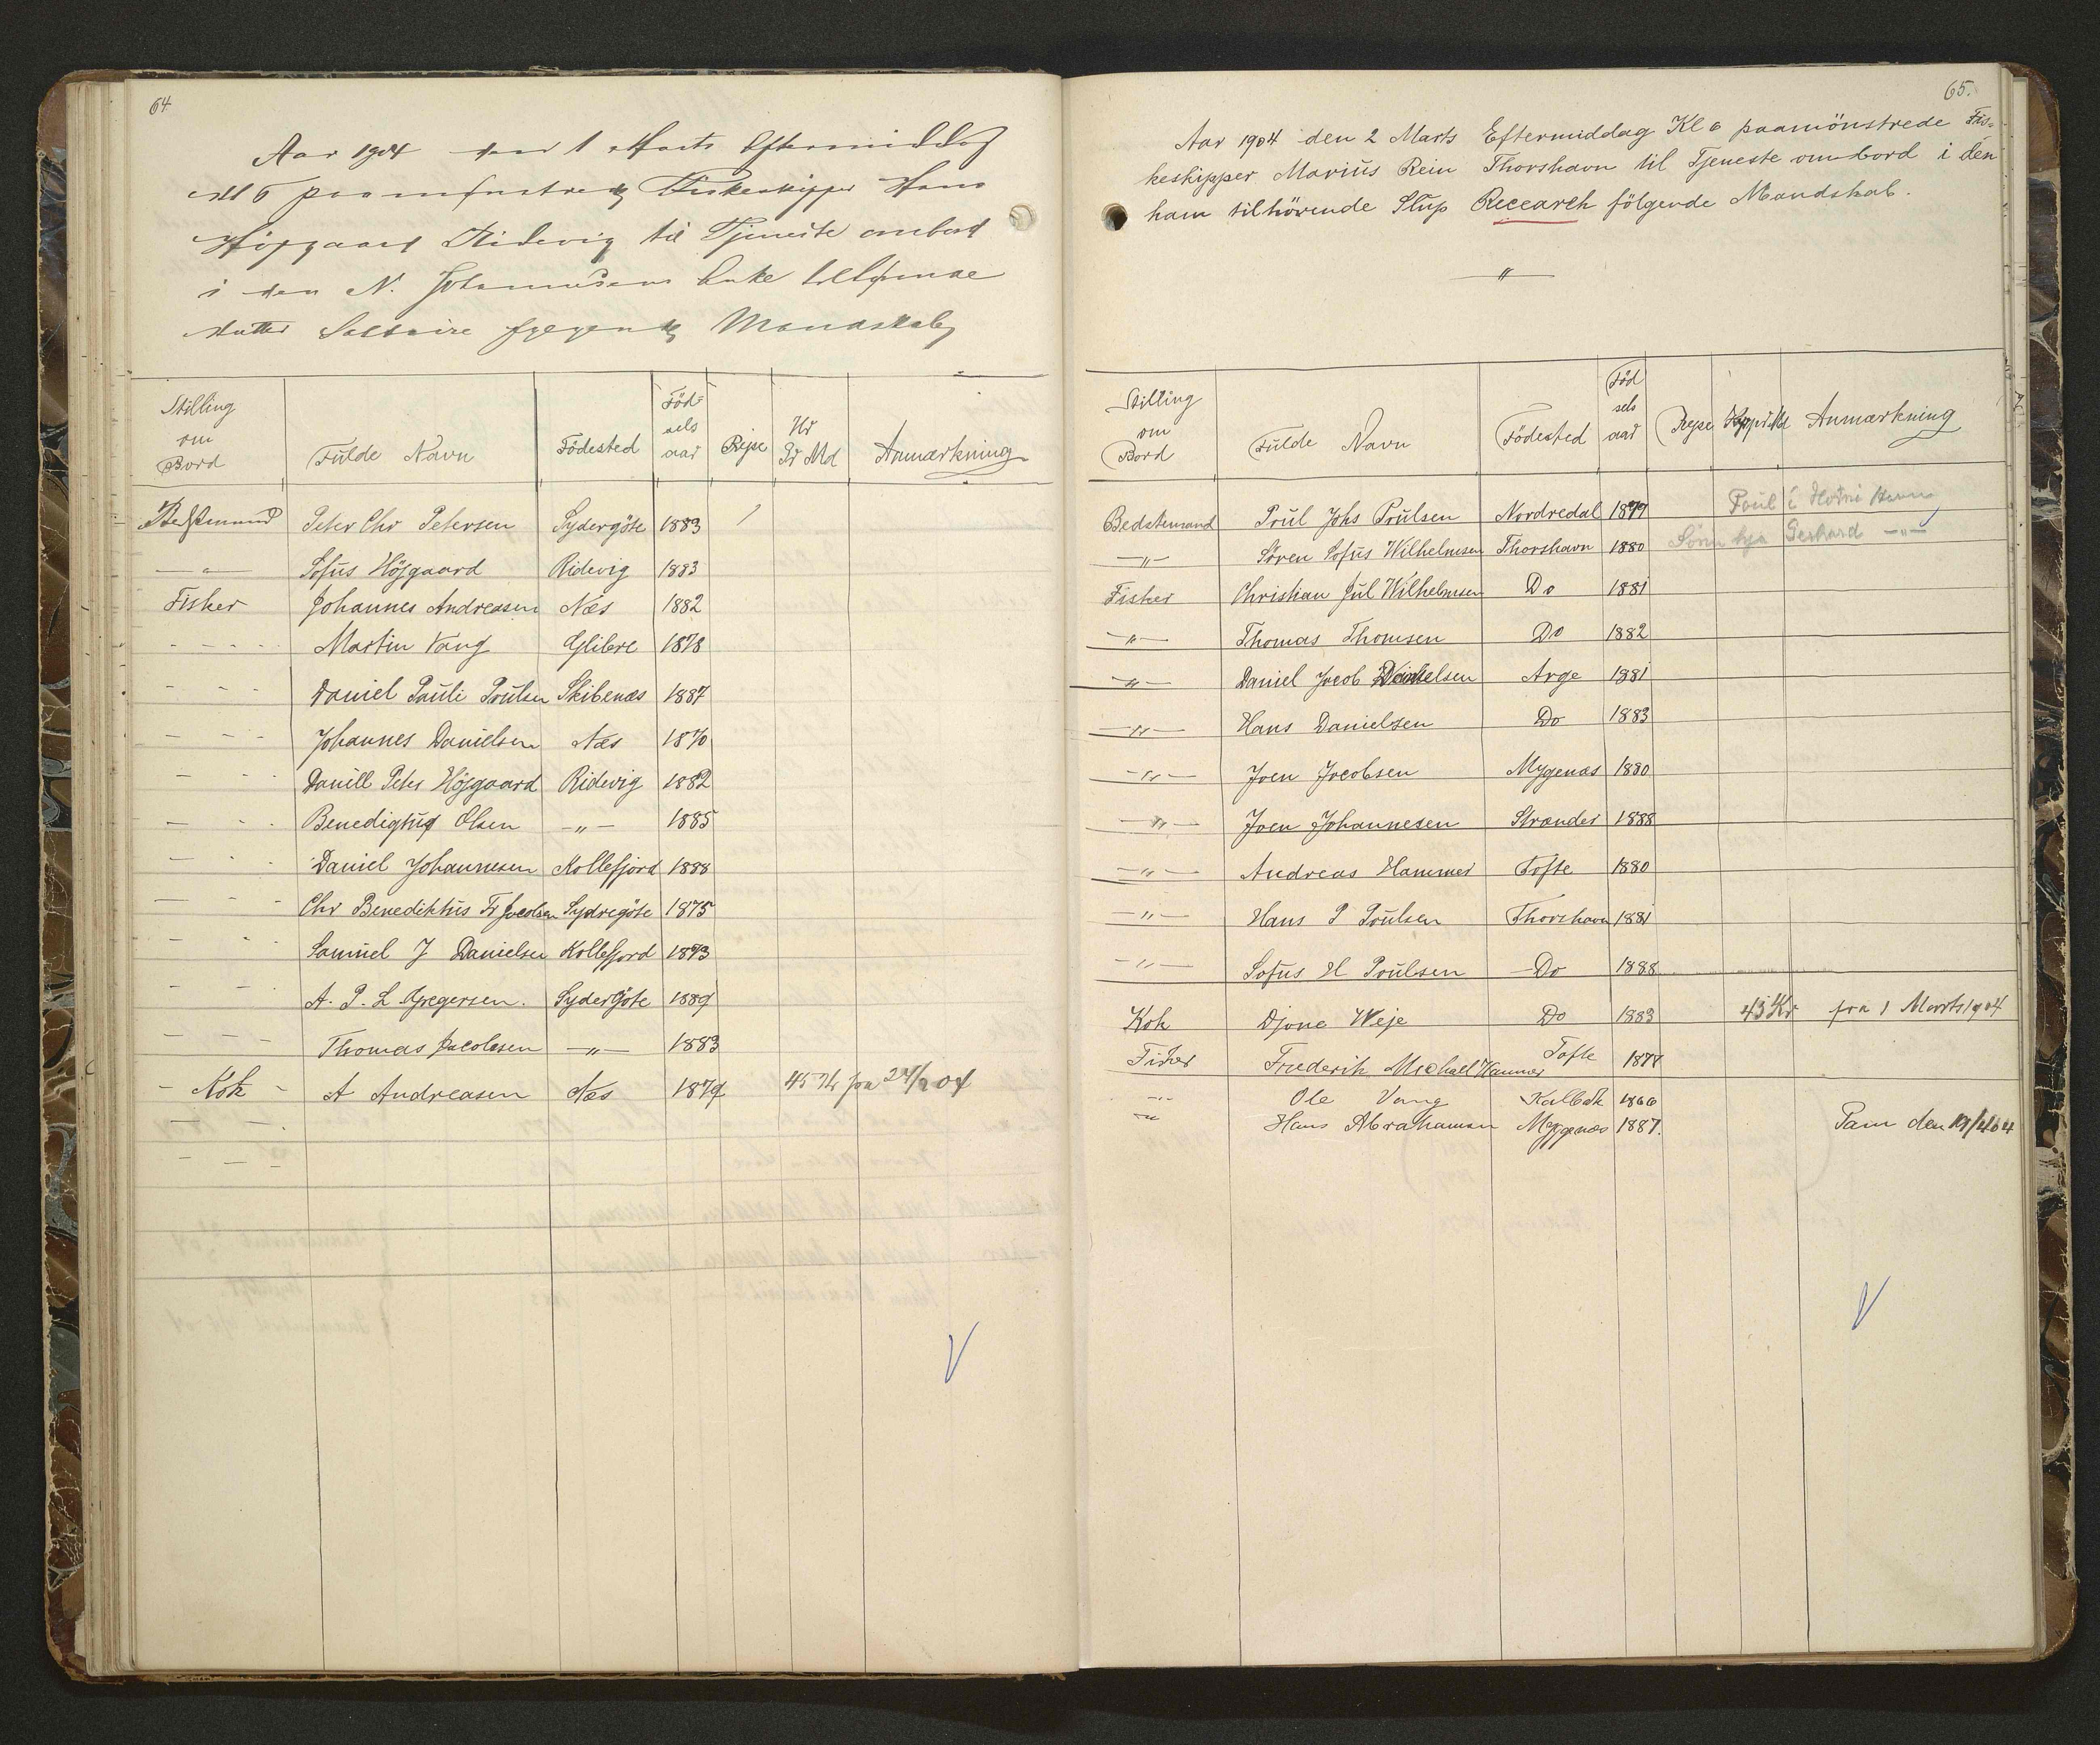 64
Aar 1904 den 1 Marts Eftermiddag
Kl 6 paamønstrede Fiskeskipper Hans
Højgaard Ridevig til Tjeneste ombord
i den N. Johannesens Enke
Kutter Mandskab
Stilling om Bord Fulde Navn Födested Födselsaar Rejse Kr Pr Md Anmærkning
Bedstemand Peter Chr Petersen Sydergöte 1883 1
—"— Sofus Höjgaard Ridevig 1883
Fisker Johannes Andreasen Næs 1882
- - - - Martin Vang Glibre 1878
- - - Daniel Pauli Poulsen Skibenæs 1887
- - - Johannes Danielsen Næs 1870
- - - Daniell Peter Höjgaard Ridevig 1882
- - - Benedigtus Olsen —"— 1885
- - - Daniel Johannesen Kollefjord 1888
- - - Chr Benediktus Fr Jacobsen Sydregöte 1875
- - - Samuel J Danielsen Kollefjord 1873
- - A. P. L Gregersen. SyderGöte 1889
- - - Thomas Jacobsen —"— 1883
- Kok - A Andreasen Næs 1879 45 Kr fra 27/2 04
65.
Aar 1904 den 2 Marts Eftermiddag Kl 6 paamönstrede Fis=
keskipper Marius Rein Thorshavn til Tjeneste ombord i den
ham tilhörende Slup Recearch fölgende Mandskab.
—"—
Stilling om Bord Fulde Navn Födested Födselsaar Rejse Hyre pr Md Anmærkning
Bedstemand Poul Johs Poulsen Nordredal 1879 Poul i
—"— Sören Sofus Wilhelmsen Thorshavn 1880 Gerhard —"—
Fisker Christian Jul Wilhelmsen Do 1881
—"— Thomas Thomsen Do 1882
—"— Daniel Jacob Danielsen Arge 1881
—"— Hans Danielsen Do 1883
—"— Joen Jacobsen Mygenæs 1880
—"— Joen Johannesen Strander 1888
—"— Andreas Hammer Tofte 1880
—"— Hans P Poulsen Thorshavn 1881
—"— Sofus H Poulsen Do 1888
Kok Djone Weje Do 1883 43 Kr fra 1 Marts 1904
Fisker Frederik Michael Hammer Tofte 1878
—"— Ole Vang Kalbak 1866
—"— Hans Abrahamsen Myggenæs 1887. Paam den 19/4 04